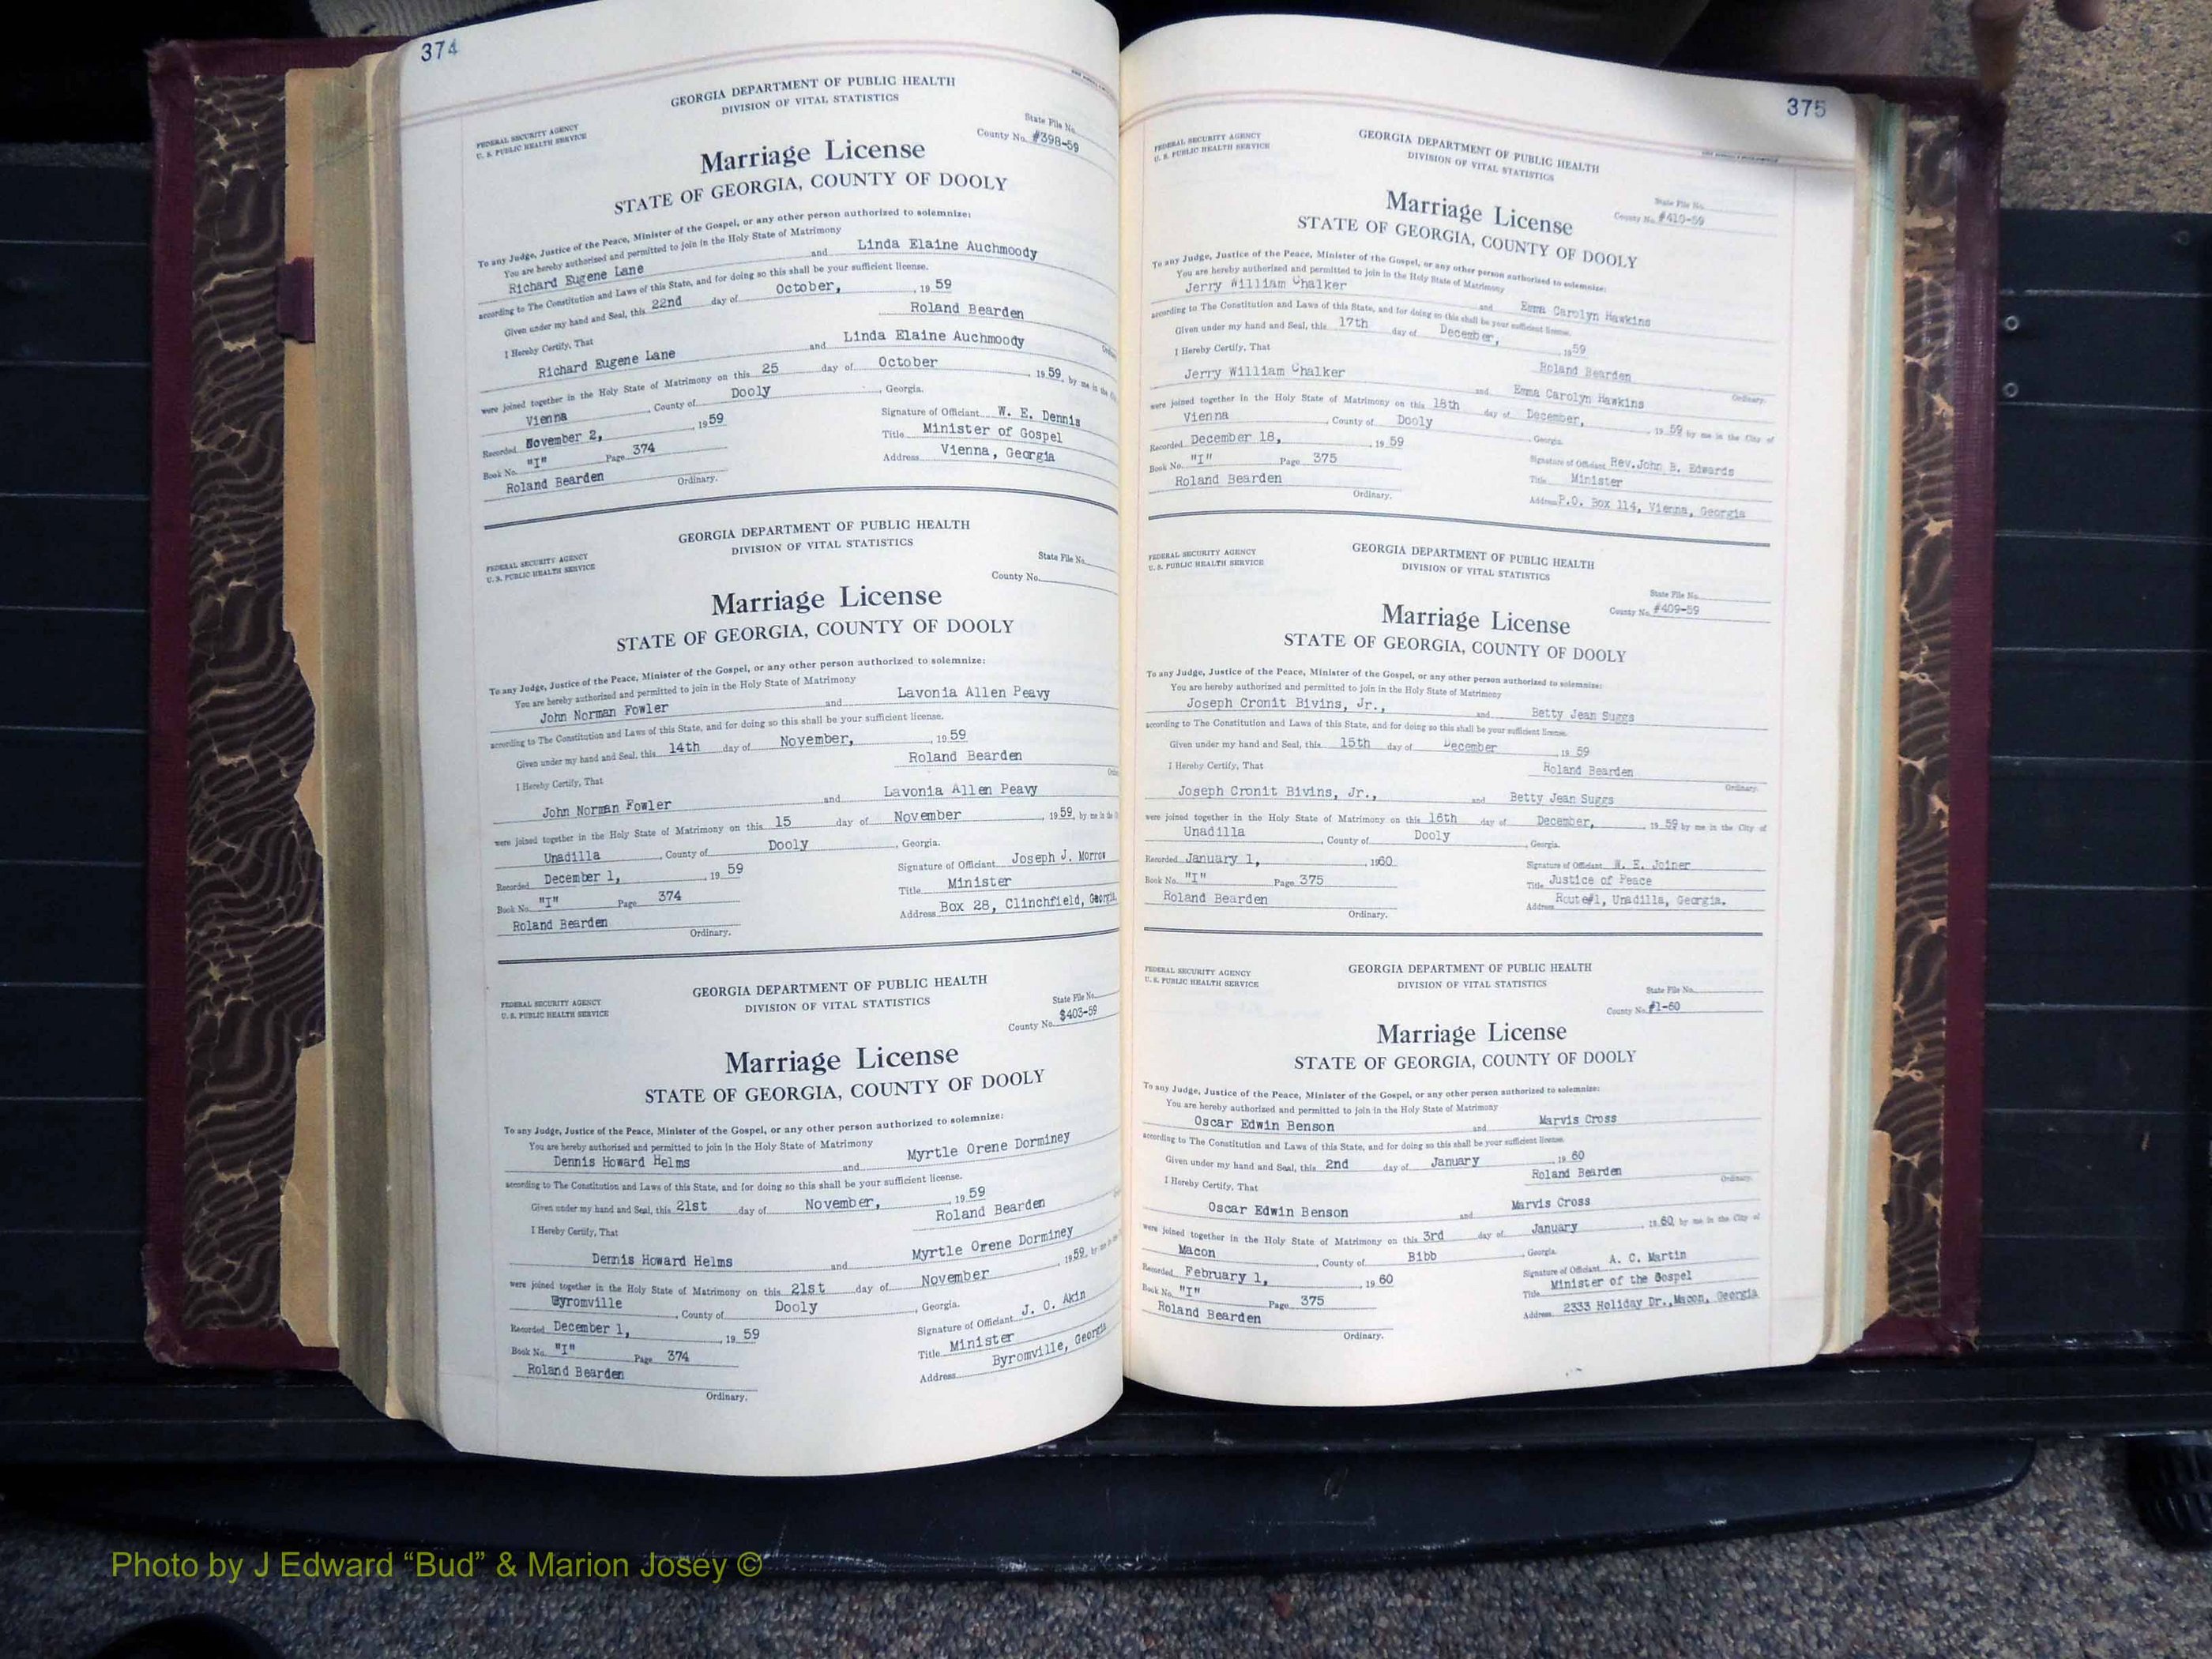 374
GEORGIA DEPARTMENT OF PUBLIC HEALTH
DIVISION OF VITAL STATISTICS
FEDERAL SECURITY AGENCY
U. S. PUBLIC HEALTH SERVICE
State File No.
County No. #398-59
Marriage License
STATE OF GEORGIA, COUNTY OF DOOLY
To any Judge, Justice of the Peace, Minister of the Gospel, or any other person authorized to solemnize:
You are hereby authorized and permitted to join in the Holy State of Matrimony
Richard Eugene Lane and Linda Elaine Auchmoody
according to The Constitution and Laws of this State, and for doing so this shall be your sufficient license.
Given under my hand and Seal, this 22nd day of October, , 19 59
Roland Bearden
I Hereby Certify, That
Richard Eugene Lane and Linda Elaine Auchmoody
were joined together in the Holy State of Matrimony on this 25 day of October 19 59, by me in the
Vienna , County of Dooly , Georgia.
Recorded November 2, , 19 59
Signature of Officiant W. E. Dennis
Book No. "I" Page 374
Title Minister of Gospel
Roland Bearden
Address Vienna, Georgia
Ordinary.
GEORGIA DEPARTMENT OF PUBLIC HEALTH
DIVISION OF VITAL STATISTICS
FEDERAL SECURITY AGENCY
U. S. PUBLIC HEALTH SERVICE
State File No.
County No.
Marriage License
STATE OF GEORGIA, COUNTY OF DOOLY
To any Judge, Justice of the Peace, Minister of the Gospel, or any other person authorized to solemnize:
You are hereby authorized and permitted to join in the Holy State of Matrimony
John Norman Fowler and Lavonia Allen Peavy
according to The Constitution and Laws of this State, and for doing so this shall be your sufficient license.
Given under my hand and Seal, this 14th day of November, , 19 59
Roland Bearden
I Hereby Certify, That
John Norman Fowler and Lavonia Allen Peavy
were joined together in the Holy State of Matrimony on this 15 day of November , 19 59, by me in the
Unadilla , County of Dooly , Georgia.
Recorded December 1, , 19 59
Signature of Officiant Joseph J. Morrow
Book No. "I" Page 374
Title Minister
Roland Bearden
Address Box 28, Clinchfield, Georgia.
Ordinary.
GEORGIA DEPARTMENT OF PUBLIC HEALTH
DIVISION OF VITAL STATISTICS
FEDERAL SECURITY AGENCY
U. S. PUBLIC HEALTH SERVICE
State File No.
County No. $403-59
Marriage License
STATE OF GEORGIA, COUNTY OF DOOLY
To any Judge, Justice of the Peace, Minister of the Gospel, or any other person authorized to solemnize:
You are hereby authorized and permitted to join in the Holy State of Matrimony
Dennis Howard Helms and Myrtle Orene Dorminey
according to The Constitution and Laws of this State, and for doing so this shall be your sufficient license.
Given under my hand and Seal, this 21st day of November, , 19 59
Roland Bearden
I Hereby Certify, That
Dennis Howard Helms and Myrtle Orene Dorminey
were joined together in the Holy State of Matrimony on this 21st day of November , 19 59, by me in the
Byromville , County of Dooly , Georgia.
Recorded December 1, , 19 59
Signature of Officiant J. O. Akin
Book No. "I" Page 374
Title Minister
Roland Bearden
Address Byromville, Georgia
Ordinary.
375
FEDERAL SECURITY AGENCY
U. S. PUBLIC HEALTH SERVICE
GEORGIA DEPARTMENT OF PUBLIC HEALTH
DIVISION OF VITAL STATISTICS
State File No.
County No. #410-59
Marriage License
STATE OF GEORGIA, COUNTY OF DOOLY
To any Judge, Justice of the Peace, Minister of the Gospel, or any other person authorized to solemnize:
You are hereby authorized and permitted to join in the Holy State of Matrimony
Jerry William Chalker and Emma Carolyn Hawkins
according to The Constitution and Laws of this State, and for doing so this shall be your sufficient license.
Given under my hand and Seal, this 17th day of December, , 19 59
Roland Bearden
I Hereby Certify, That
Ordinary.
Jerry William Chalker and Emma Carolyn Hawkins
were joined together in the Holy State of Matrimony on this 18th day of December, 19 59 by me in the City of
Vienna , County of Dooly , Georgia.
Recorded December 18, , 19 59
Signature of Officiant Rev.John B. Edwards
Book No. "I" Page 375
Title Minister
Roland Bearden
Address P.O. Box 114, Vienna, Georgia
Ordinary.
FEDERAL SECURITY AGENCY
U. S. PUBLIC HEALTH SERVICE
GEORGIA DEPARTMENT OF PUBLIC HEALTH
DIVISION OF VITAL STATISTICS
State File No.
County No. #409-59
Marriage License
STATE OF GEORGIA, COUNTY OF DOOLY
To any Judge, Justice of the Peace, Minister of the Gospel, or any other person authorized to solemnize:
You are hereby authorized and permitted to join in the Holy State of Matrimony
Joseph Cronit Bivins, Jr., and Betty Jean Suggs
according to The Constitution and Laws of this State, and for doing so this shall be your sufficient license.
Given under my hand and Seal, this 15th day of December , 19 59
Roland Bearden
I Hereby Certify, That
Ordinary.
Joseph Cronit Bivins, Jr., and Betty Jean Suggs
were joined together in the Holy State of Matrimony on this 16th day of December, 19 59 by me in the City of
Unadilla , County of Dooly , Georgia.
Recorded January 1, , 1960
Signature of Officiant W. E. Joiner
Book No. "I" Page 375
Title Justice of Peace
Roland Bearden
Address Route#1, Unadilla, Georgia.
Ordinary.
FEDERAL SECURITY AGENCY
U. S. PUBLIC HEALTH SERVICE
GEORGIA DEPARTMENT OF PUBLIC HEALTH
DIVISION OF VITAL STATISTICS
State File No.
County No. #1-60
Marriage License
STATE OF GEORGIA, COUNTY OF DOOLY
To any Judge, Justice of the Peace, Minister of the Gospel, or any other person authorized to solemnize:
You are hereby authorized and permitted to join in the Holy State of Matrimony
Oscar Edwin Benson and Marvis Cross
according to The Constitution and Laws of this State, and for doing so this shall be your sufficient license.
Given under my hand and Seal, this 2nd day of January , 19 60
Roland Bearden
I Hereby Certify, That
Ordinary.
Oscar Edwin Benson and Marvis Cross
were joined together in the Holy State of Matrimony on this 3rd day of January , 19 60 by me in the City of
Macon , County of Bibb , Georgia.
Recorded February 1, , 19 60
Signature of Officiant A. C. Martin
Book No. "I" Page 375
Title Minister of the Gospel
Roland Bearden
Address 2333 Holiday Dr.,Macon, Georgia
Ordinary.
Photo by J Edward “Bud” & Marion Josey ©